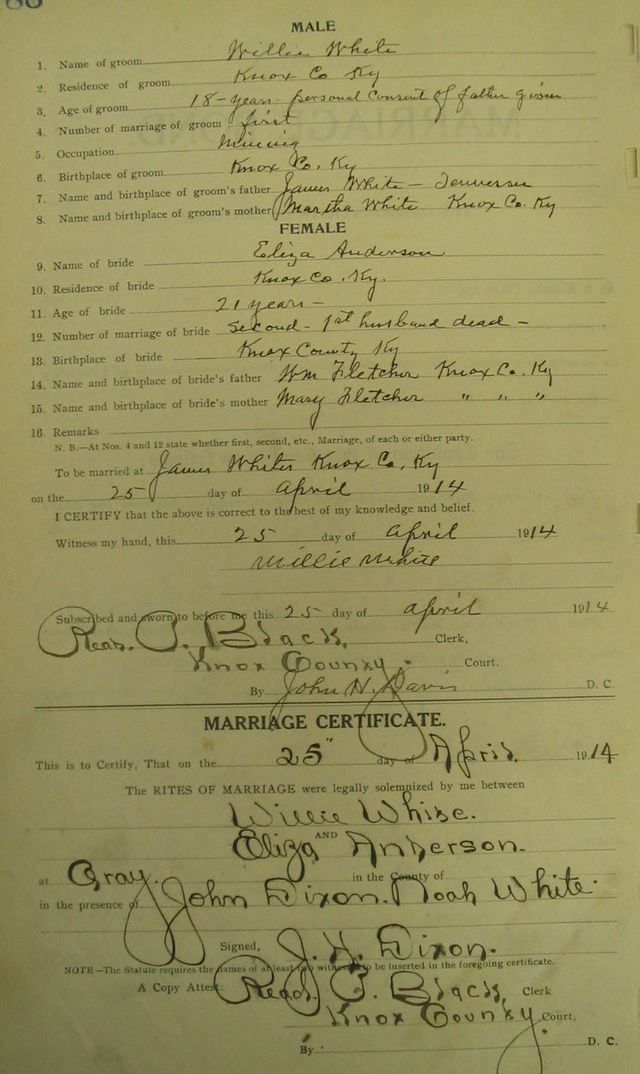 MALE
1. Name of groom Willie White
2. Residence of groom Knox Co Ky
3. Age of groom 18 - years personal consent of father given
4. Number of marriage of groom first
5. Occupation Mining
6. Birthplace of groom Knox Co. Ky
7. Name and birthplace of groom's father James White -
8. Name and birthplace of groom's mother Martha White Knox Co. Ky
FEMALE
9. Name of bride Eliza Anderson
10. Residence of bride Knox Co. Ky.
11. Age of bride 21 years -
12. Number of marriage of bride Second - 1st husband dead -
13. Birthplace of bride Knox County Ky
14. Name and birthplace of bride's father Wm Fletcher Knox Co. Ky
15. Name and birthplace of bride's mother Mary Fletcher " " "
16. Remarks
N. B.—At Nos. 4 and 12 state whether first, second, etc., Marriage, of each or either party.
To be married at James Whites Knox Co, Ky
on the 25 day of April 1914
I CERTIFY that the above is correct to the best of my knowledge and belief.
Witness my hand, this 25 day of April 1914
Willie White
Subscribed and sworn to before me this 25 day of April 1914
Read. P. Black, Clerk,
Knox County. Court.
By John H. Davis D. C.
MARRIAGE CERTIFICATE.
This is to Certify, That on the 25" day of April. 1914
The RITES OF MARRIAGE were legally solemnized by me between
Willie White.
AND
Eliza Anderson.
at Gray. in the County of
in the presence of John Dixon. Noah White.
Signed, J. H. Dixon.
NOTE—The Statute requires the names of at least two witnesses to be inserted in the foregoing certificate.
A Copy Attest: Read. P. Black, Clerk
Knox County. Court,
By D. C.